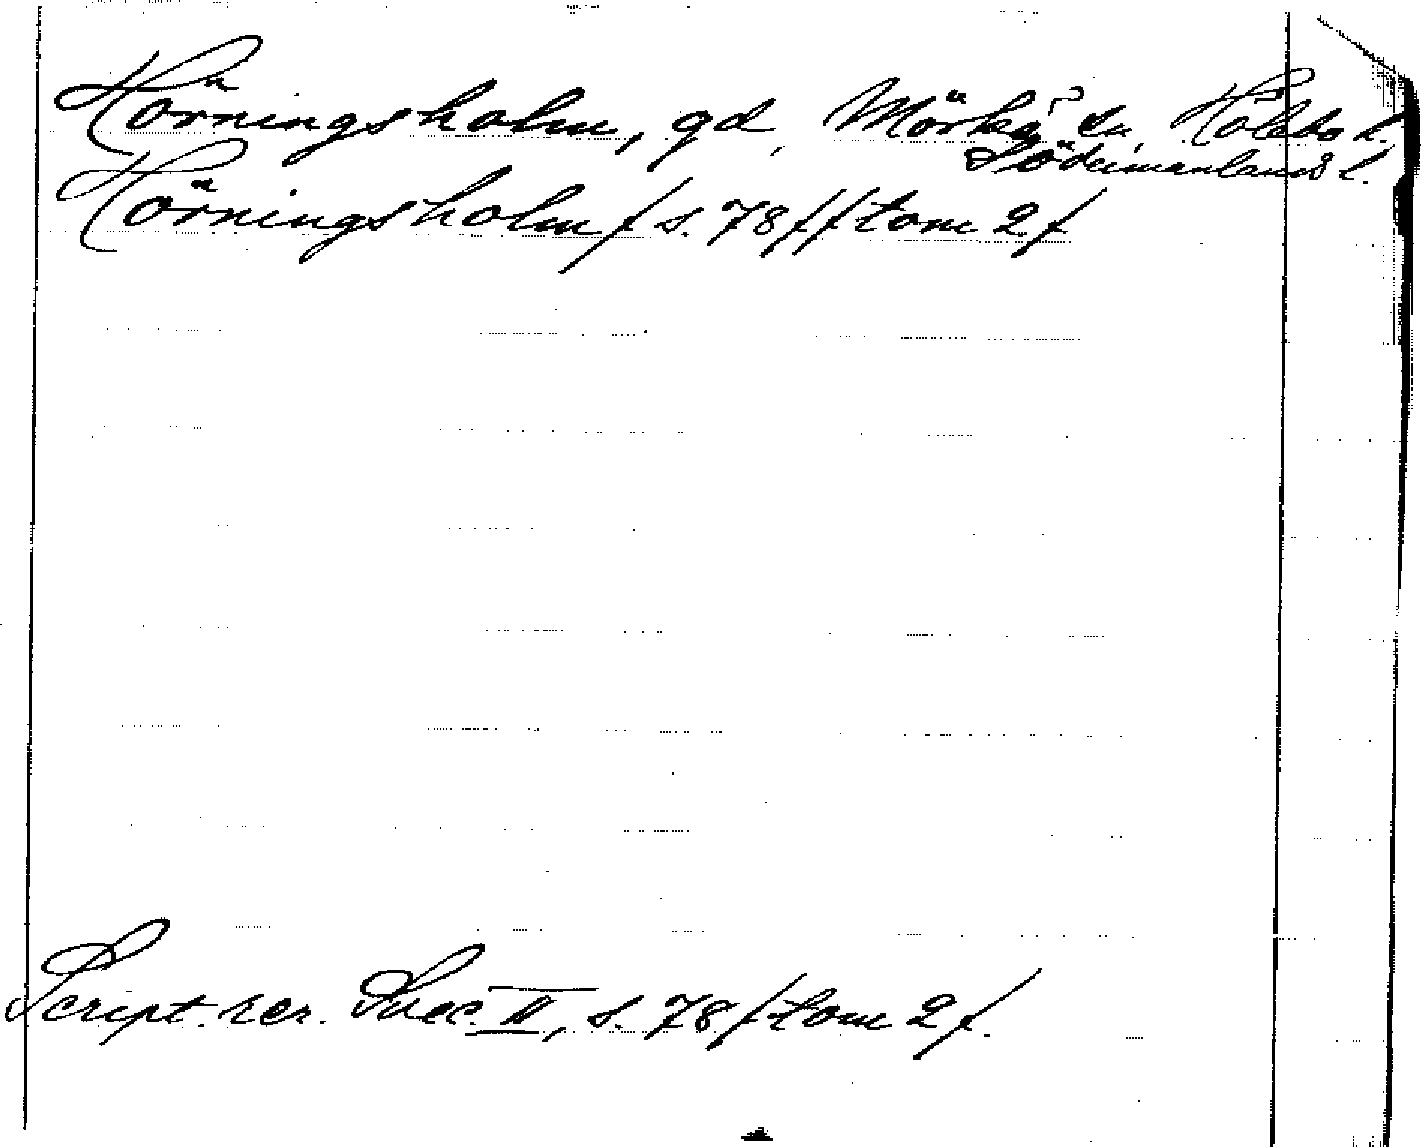 Hörningsholm, gd, Mörkö sn, Hölebo h.,
Södermanlands l.
Hörningsholm / s. 78 // tom 2 /
Script. rer. Svec. II, s. 78 / tom 2 /.